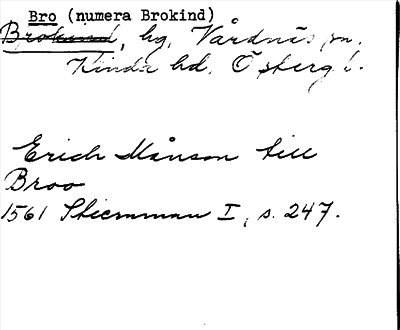 Bro (numera Brokind)
Brokind, hg, Vårdnäs sn.
Kinda hd, Östergl.
Erich Månson till
Broo
1561 Stiernman I, s. 247.